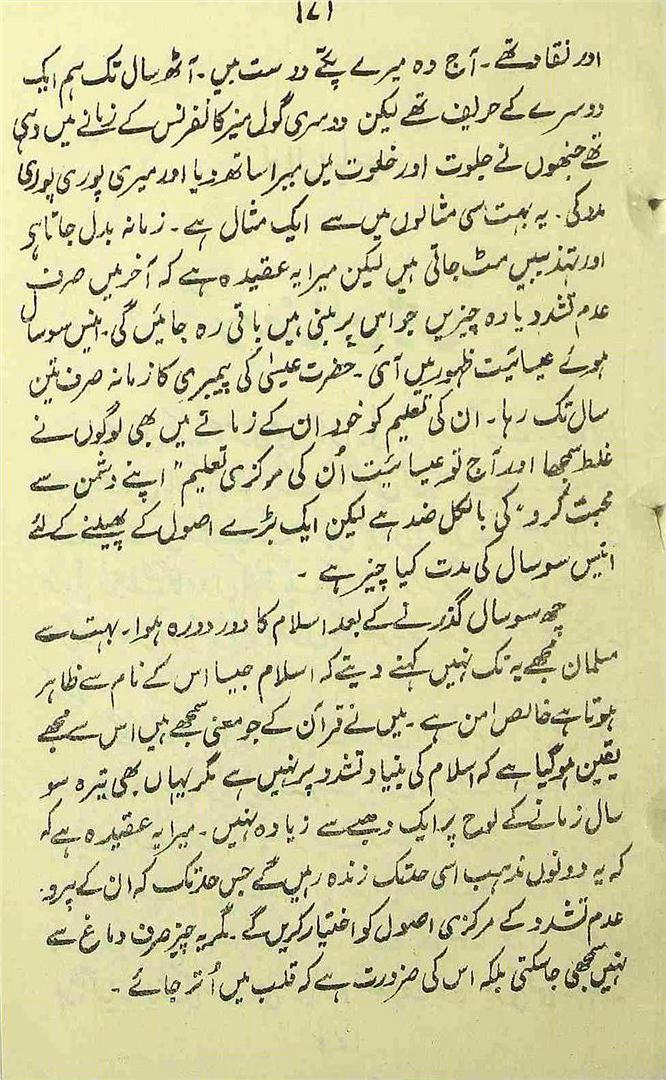 ۱۷۱
اور نقاد تھے۔ آج وہ میرے پکے دوست ہیں۔ آٹھ سال تک ہم ایک
دوسرے کے حریف تھے لیکن دوسری گول میز کانفرنس کے زمانے میں وہی
تھے جنھوں نے جلوت اور خلوت میں میرا ساتھ دیا اور میری پوری پوری
مدد کی۔ یہ بہت سی مثالوں میں سے ایک مثال ہے۔ زمانہ بدل جاتا ہے
اور تہذیبیں مٹ جاتی ہیں لیکن میرا یہ عقیدہ ہے کہ آخر میں صرف
عدم تشدد یا وہ چیزیں جو اس پر مبنی ہیں باقی رہ جائیں گی۔ انیس سو سال
ہوئے عیسائیت ظہور میں آئی۔ حضرت عیسیٰ کی پیمبری کا زمانہ صرف تین
سال تک رہا۔ ان کی تعلیم کو خود ان کے زمانے میں بھی لوگوں نے
غلط سمجھا اور آج تو عیسائیت اُن کی مرکزی تعلیم "اپنے دشمن سے
محبت کرو" کی بالکل ضد ہے لیکن ایک بڑے اصول کے پھیلنے کے لئے
انیس سو سال کی مدت کیا چیز ہے۔
چھ سو سال گذرنے کے بعد اسلام کا دور دورہ ہوا۔ بہت سے
مسلمان مجھے یہ تک نہیں کہنے دیتے کہ اسلام جیسا اس کے نام سے ظاہر
ہوتا ہے خالص امن ہے۔ میں نے قرآن کے جو معنی سمجھے ہیں اس سے مجھے
یقین ہوگیا ہے کہ اسلام کی بنیاد تشدد پر نہیں ہے مگر یہاں بھی تیرہ سو
سال زمانے کے لوح پر ایک دھبے سے زیادہ نہیں۔ میرا یہ عقیدہ ہے کہ
کہ یہ دونوں مذہب اسی حد تک زندہ رہیں گے جس حد تک کہ ان کے پیرو
عدم تشدد کے مرکزی اصول کو اختیار کریں گے۔ مگر یہ چیز صرف دماغ سے
نہیں سمجھی جاسکتی بلکہ اس کی ضرورت ہے کہ قلب میں اُتر جائے۔